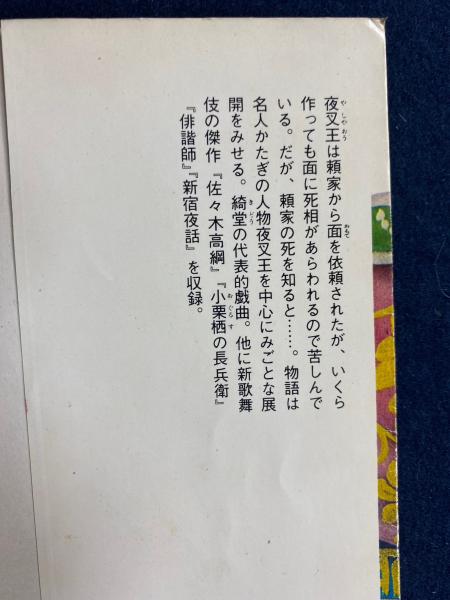 夜叉王は頼家から面を依頼されたが、いくら
作っても面に死相があらわれるので苦しんで
いる。だが、頼家の死を知ると……。物語は
名人かたぎの人物夜叉王を中心にみごとな展
開をみせる。綺堂の代表的戯曲。他に新歌舞
伎の傑作『佐々木高綱』『小栗栖の長兵衛』
『俳諧師』『新宿夜話』を収録。